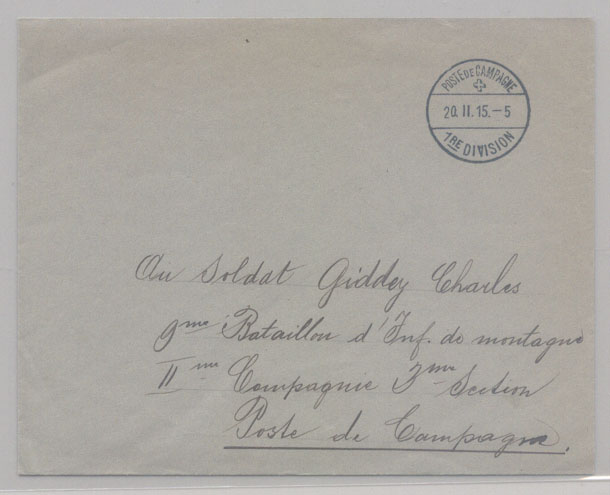 POSTE DE CAMPAGNE
20. II. 15. – 5
1RE DIVISION
Au Soldat Giddey Charles
9me Bataillon d'Inf. de montagne
IIme Compagnie 3me Section
Poste de Campagne.